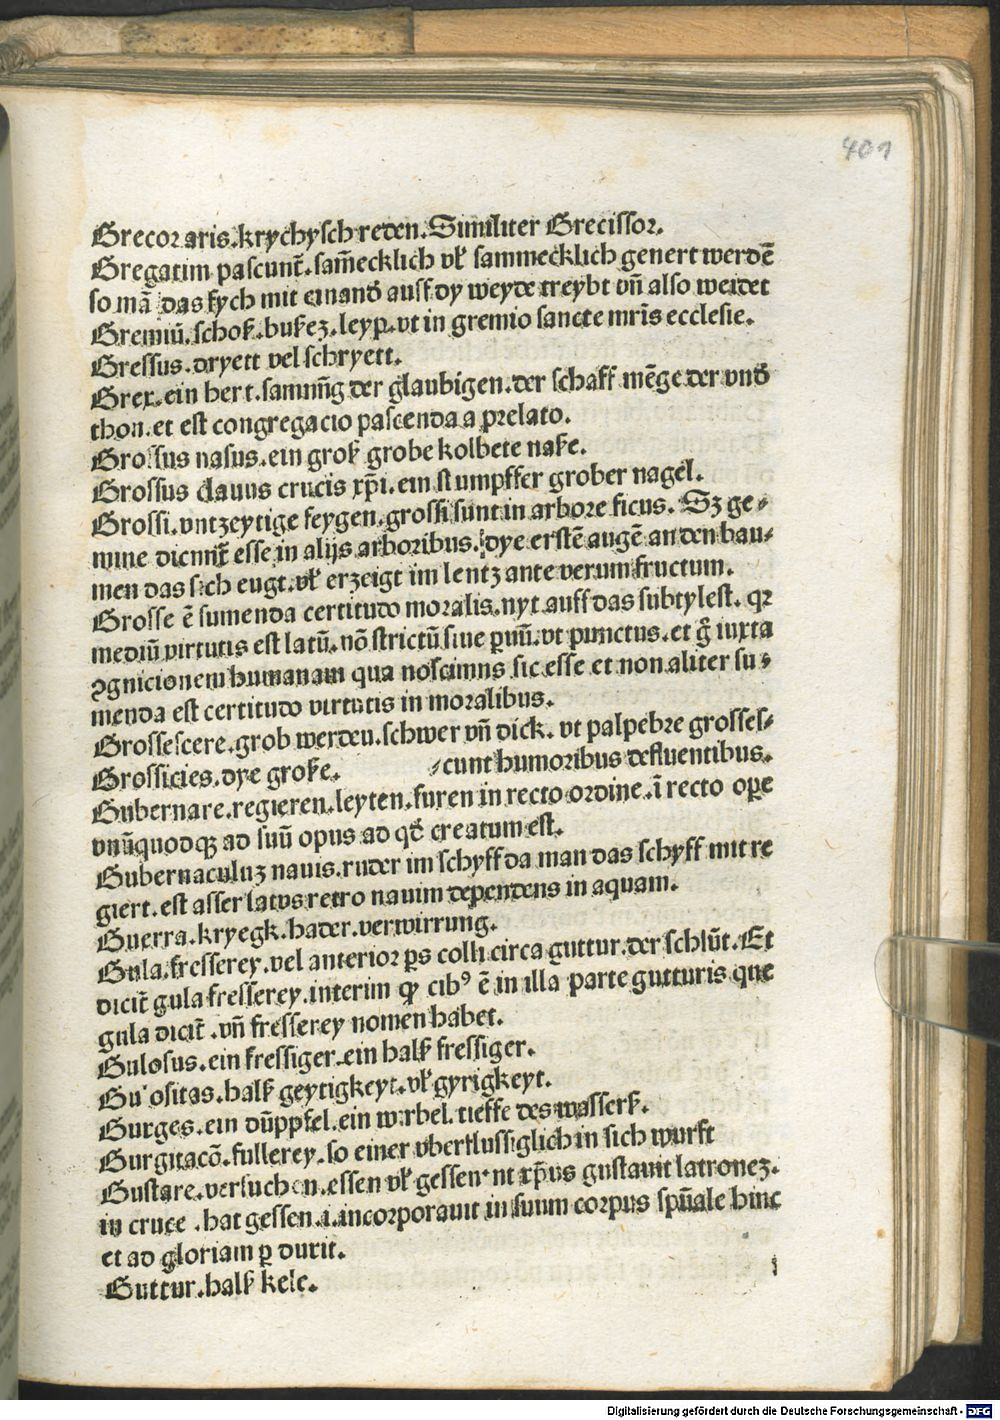 401
Grecor aris.krychysch reden.Similiter Grecissor.
Gregatim pascunt̄.sam̄ecklich vl̕ sammecklich genert werdē
so mā das sych mit einand̕ auff dy weyde treybt vn̄ also weidet
Gremiū.schoß.bußez.leyp.vt in gremio sancte mr̄is ecclesie.
Gressus.dryett vel schryett.
Grex.ein hert.samm̄g der glaubigen.der schaff mēge der vnd̕
thon.et est congregacio pascenda a prelato.
Grossus nasus.ein groß grobe kolbete naße.
Grossus clauus crucis xp̄i.ein stumpffer grober nagel.
Grossi.vntzeytige feygen.grossi sunt in arbore ficus. Sz ge⸗
mine dicunt̄ esse in alijs arboribus.dye erstē augē an den bau⸗
men das sich eugt.vl̕ erzeigt im lentz ante verum fructum.
Grosse ē sumenda certitudo moralis.nyt auff das subtylest. qꝛ
mediū virtutis est latū.nō strictū siue ꝑuū.vt punctus.et g̊ iuxta
ꝯgnicionem humanam qua noscimus sic esse et non aliter su⸗
menda est certitudo virtutis in moralibus.
Grossescere.grob werden.schwer vn̄ dick. vt palpebre grosses⸗
Grossicies.dye große. ⸗cunt humoribus defluentibus.
Gubernare.regieren.leyten.furen in recto ordine.ī recto oꝑe
vnūquodqꝫ ad suū opus ad qd̕ creatum est.
Gubernaculuz nauis.ruder im schyff da man das schyff mit re
giert.est asser latus retro nauim dependens in aquam.
Guerra.kryegk.hader.verwirrung.
Gula.fresserey.vel anterior ps colli circa guttur.der schlūt.Et
dicit̄ gula fresserey.interim ꝙ cib⁹ ē in illa parte gutturis que
gula dicit̄ .vn̄ fresserey nomen habet.
Gulosus.ein fressiger.ein halß fressiger.
Gulositas.halß geytigkeyt.vl̕ gyrigkeyt.
Gurges.ein dūppfel.ein wirbel.tieffe des wasserß.
Gurgitacō.fullerey.so einer vberflussiglich in sich wurft
Gustare.versuchen.essen vl̕ gessen.nt xp̄us gustauit latronez.
in cruce .hat gessen.i.incorporauit in suum corpus spūale hinc
et ad gloriam ꝑ duxit.
Guttur.halß kele.
Digitalisierung gefördert durch die Deutsche Forschungsgemeinschaft - DFG